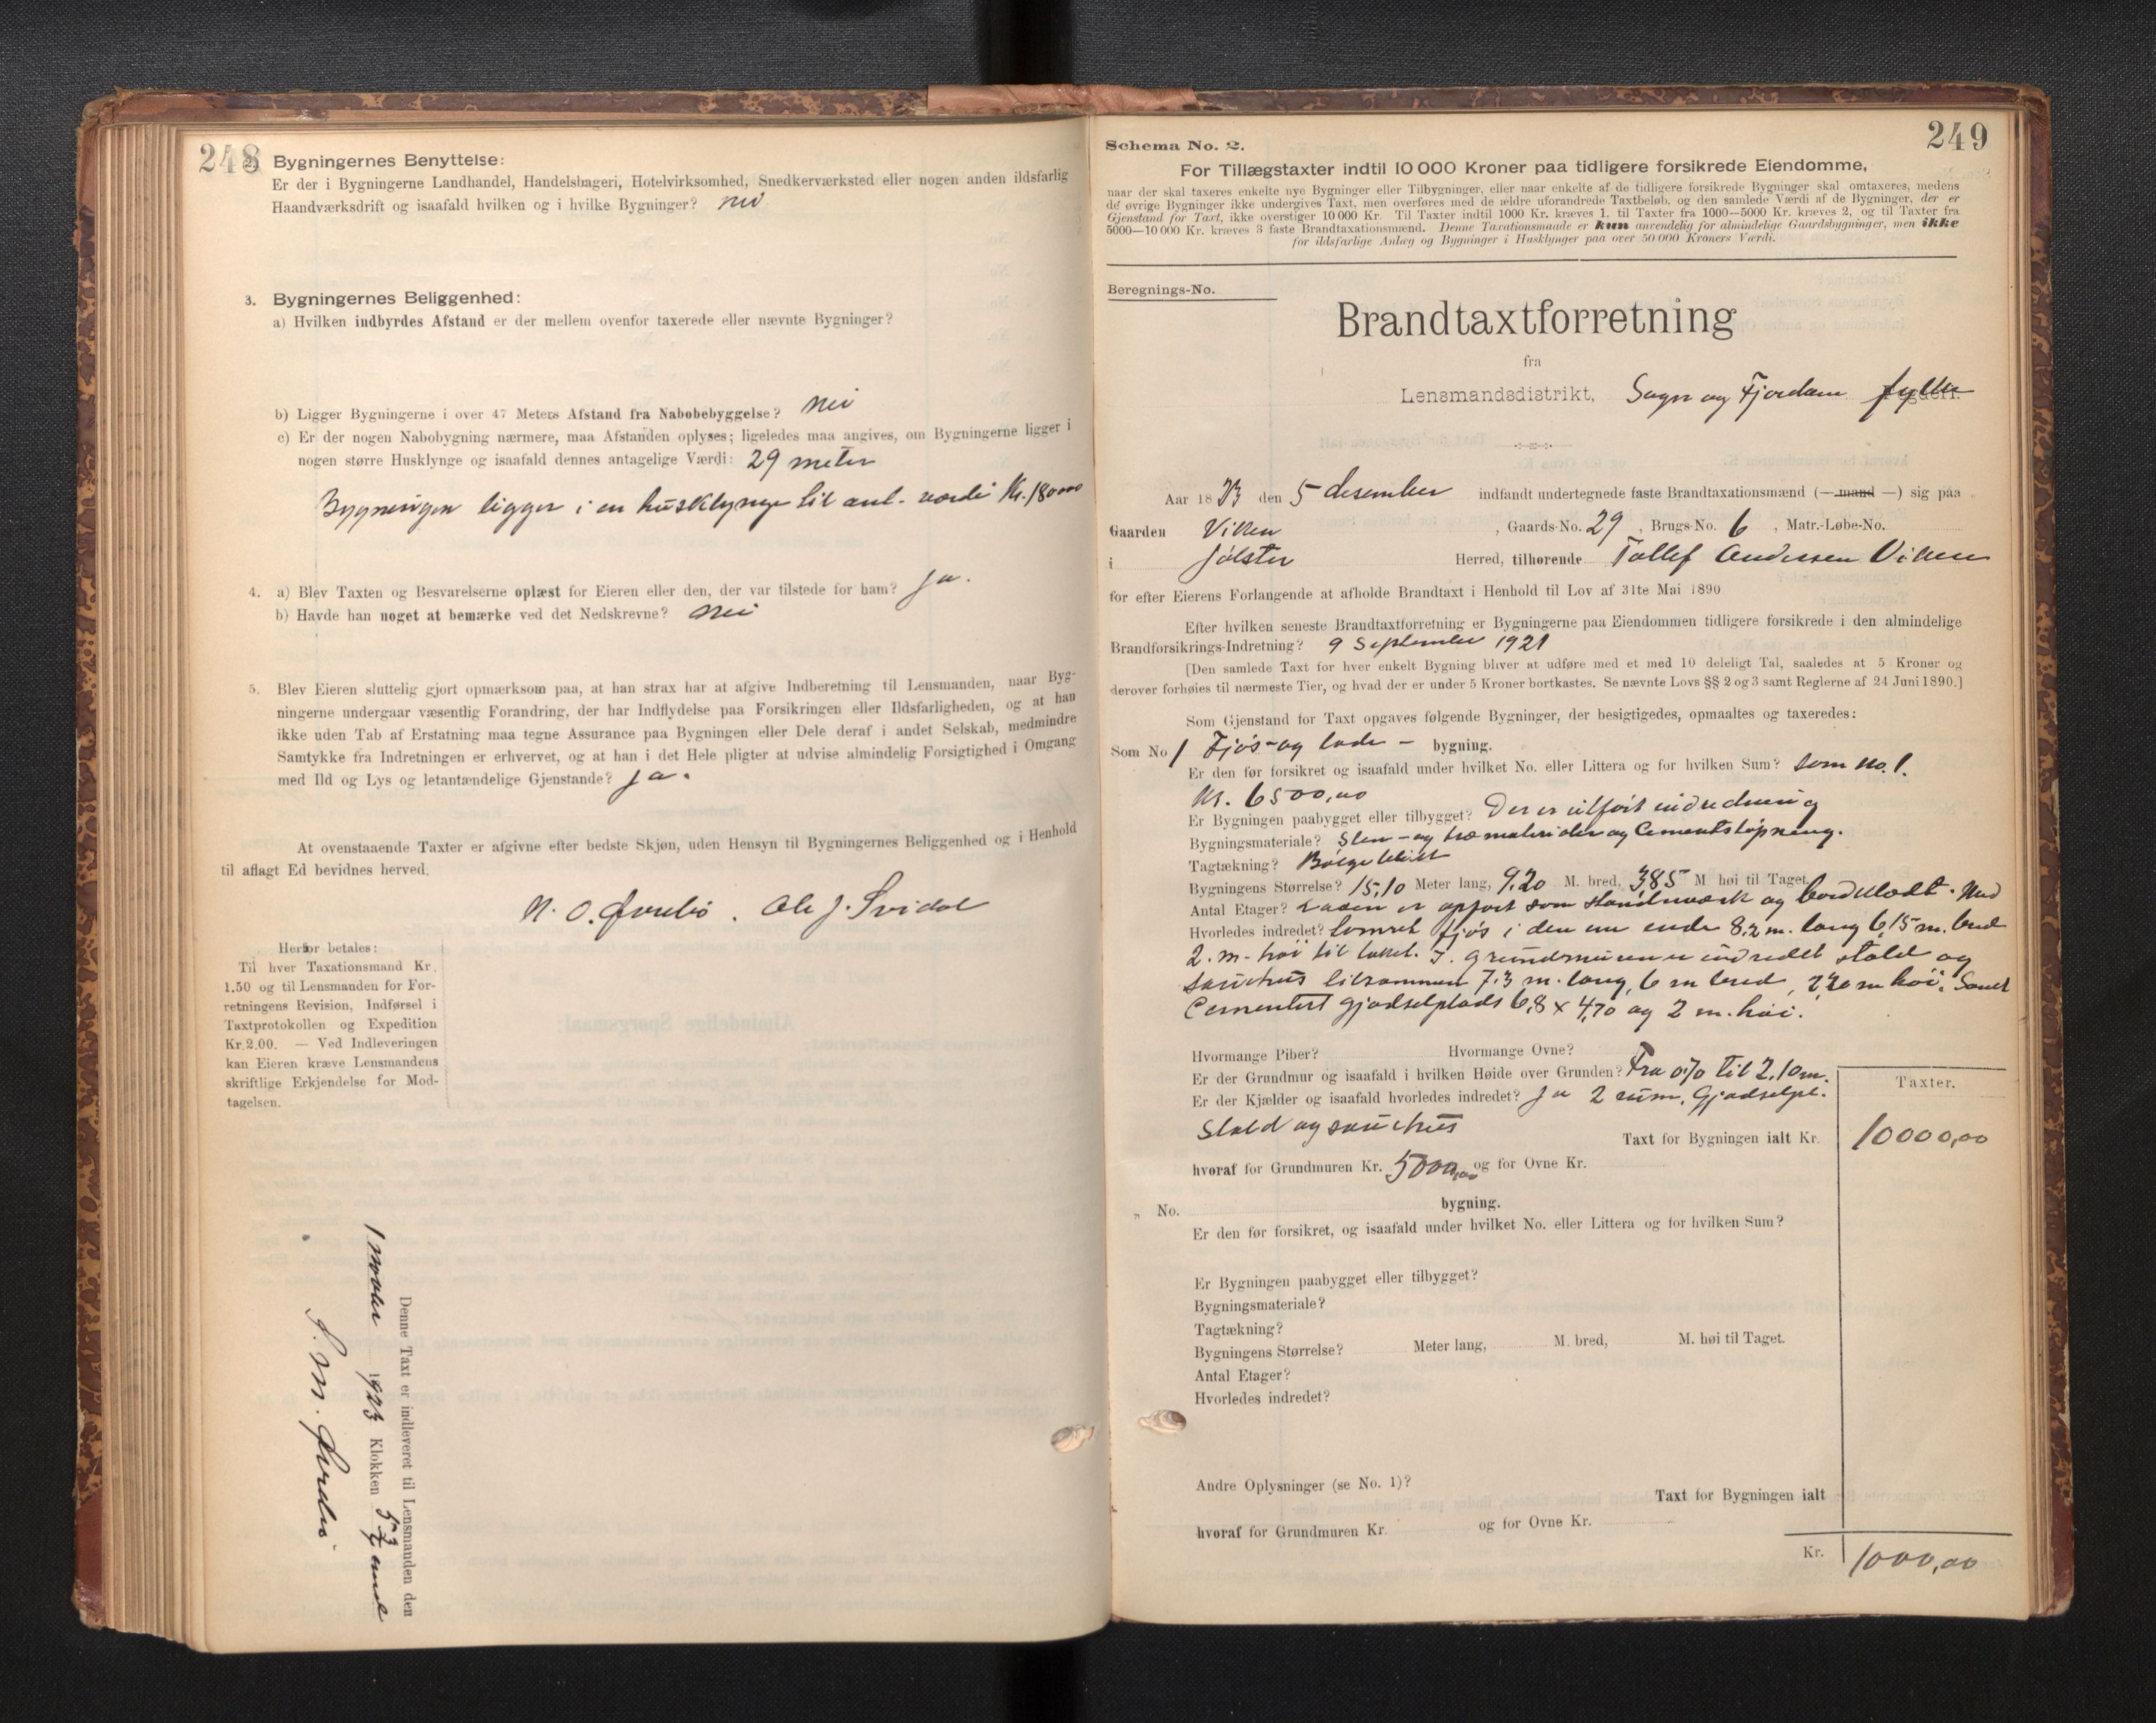 248
2. Bygningernes Benyttelse:
Er der i Bygningerne Landhandel, Handelsbageri, Hotelvirksomhed, Snedkerværksted eller nogen anden ildsfarlig
Haandværksdrift og isaafald hvilken og i hvilke Bygninger? nei
3. Bygningernes Beliggenhed:
a) Hvilken indbyrdes Afstand er der mellem ovenfor taxerede eller nævnte Bygninger?
b) Ligger Bygningerne i over 47 Meters Afstand fra Nabobebyggelse? nei
c) Er der nogen Nabobygning nærmere, maa Afstanden oplyses; ligeledes maa angives, om Bygningerne ligger i
nogen større Husklynge og isaafald dennes antagelige Værdi: 29 meter
Bygningen ligger i en husklynge til ant. værdi Kr. 18000
4. a) Blev Taxten og Besvarelserne oplæst for Eieren eller den, der var tilstede for ham? Ja.
b) Havde han noget at bemærke ved det Nedskrevne? nei
5. Blev Eieren sluttelig gjort opmærksom paa, at han strax har at afgive Indberetning til Lensmanden, naar Byg-
ningerne undergaar væsentlig Forandring, der har Indflydelse paa Forsikringen eller Ildsfarligheden, og at han
ikke uden Tab af Erstatning maa tegne Assurance paa Bygningen eller Dele deraf i andet Selskab, medmindre
Samtykke fra Indretningen er erhvervet, og at han i det Hele pligter at udvise almindelig Forsigtighed i Omgang
med Ild og Lys og letantændelige Gjenstande? Ja.
At ovenstaaende Taxter er afgivne efter bedste Skjøn, uden Hensyn til Bygningernes Beliggenhed og i Henhold
til aflagt Ed bevidnes herved.
N. O. Ørebø . Ole J. Svidal
Herfor betales:
Til hver Taxationsmand Kr.
1.50 og til Lensmanden for For-
retningens Revision, Indførsel i
Taxtprotokollen og Expedition
Kr. 2.00. — Ved Indleveringen
kan Eieren kræve Lensmandens
skriftlige Erkjendelse for Mod-
tagelsen.
Denne Taxt er indleveret til Lensmanden den
1923 Klokken
249
Schema No. 2.
For Tillægstaxter indtil 10 000 Kroner paa tidligere forsikrede Eiendomme,
naar der skal taxeres enkelte nye Bygninger eller Tilbygninger, eller naar enkelte af de tidligere forsikrede Bygninger skal omtaxeres, medens
de øvrige Bygninger ikke undergives Taxt, men overføres med de ældre uforandrede Taxtbeløb, og den samlede Værdi af de Bygninger, der er
Gjenstand for Taxt, ikke overstiger 10 000 Kr. Til Taxter indtil 1000 Kr. kræves 1, til Taxter fra 1000—5000 Kr. kræves 2, og til Taxter fra
5000—10 000 Kr. kræves 3 faste Brandtaxationsmænd. Denne Taxationsmaade er kun anvendelig for almindelige Gaardsbygninger, men ikke
for ildsfarlige Anlæg og Bygninger i Husklynger paa over 50 000 Kroners Værdi.
Beregnings-No.
Brandtaxtforretning
fra
Lensmandsdistrikt, Sogn og Fjordane fylke
Aar 1823 den 5 desember indfandt undertegnede faste Brandtaxationsmænd (— mand —) sig paa
Gaarden Viken , Gaards-No. 29 , Brugs-No. 6 , Matr.-Løbe-No.
i Jølster Herred, tilhørende Tollef Andersen Viken
for efter Eierens Forlangende at afholde Brandtaxt i Henhold til Lov af 31te Mai 1890
Efter hvilken seneste Brandtaxtforretning er Bygningerne paa Eiendommen tidligere forsikrede i den almindelige
Brandforsikrings-Indretning? 9 September 1921
[Den samlede Taxt for hver enkelt Bygning bliver at udføre med et med 10 deleligt Tal, saaledes at 5 Kroner og
derover forhøies til nærmeste Tier, og hvad der er under 5 Kroner bortkastes. Se nævnte Lovs §§ 2 og 3 samt Reglerne af 24 Juni 1890.]
Som Gjenstand for Taxt opgaves følgende Bygninger, der besigtigedes, opmaaltes og taxeredes:
Som No 1 Fjøs- og lade - bygning.
Er den før forsikret og isaafald under hvilket No. eller Littera og for hvilken Sum? Som no. 1.
Kr. 6500,00
Er Bygningen paabygget eller tilbygget? Der er utført indredning
Bygningsmateriale? Sten- og træmaterialer og Cementstøpning.
Tagtækning? Bølgeblikk
Bygningens Størrelse? 15,10 Meter lang, 9,20 M. bred, 3,85 M høi til Taget
Antal Etager? Laden er opført som standværk og bordklædt. Med
Hvorledes indredet? tømret fjøs i den ene ende 8,2 m. lang 6,15 m. bred
2. m. høi til taket. I grundmuren er indredet stald og
sauehus tilsammen 7.3 m. lang, 6 m bred, 2,20 m høi. Samt
Cementert gjødselplads 6,8 x 4,70 og 2 m. høi.
Hvormange Piber? Hvormange Ovne?
Er der Grundmur og isaafald i hvilken Høide over Grunden? Fra 0,70 til 2,10 m.
Er der Kjælder og isaafald hvorledes indredet? Ja 2 rum. Gjødselpl.
Stald og sauehus
Taxter.
Taxt for Bygningen ialt Kr. 10000,00
hvoraf for Grundmuren Kr. 5000,00 og for Ovne Kr.
„ No. bygning.
Er den før forsikret, og isaafald under hvilket No. eller Littera og for hvilken Sum?
Er Bygningen paabygget eller tilbygget?
Bygningsmateriale?
Tagtækning?
Bygningens Størrelse? Meter lang, M. bred, M. høi til Taget.
Antal Etager?
Hvorledes indredet?
Andre Oplysninger (se No. 1)?
Taxt for Bygningen ialt
hvoraf for Grundmuren Kr. og for Ovne Kr.
Kr. 1000,00